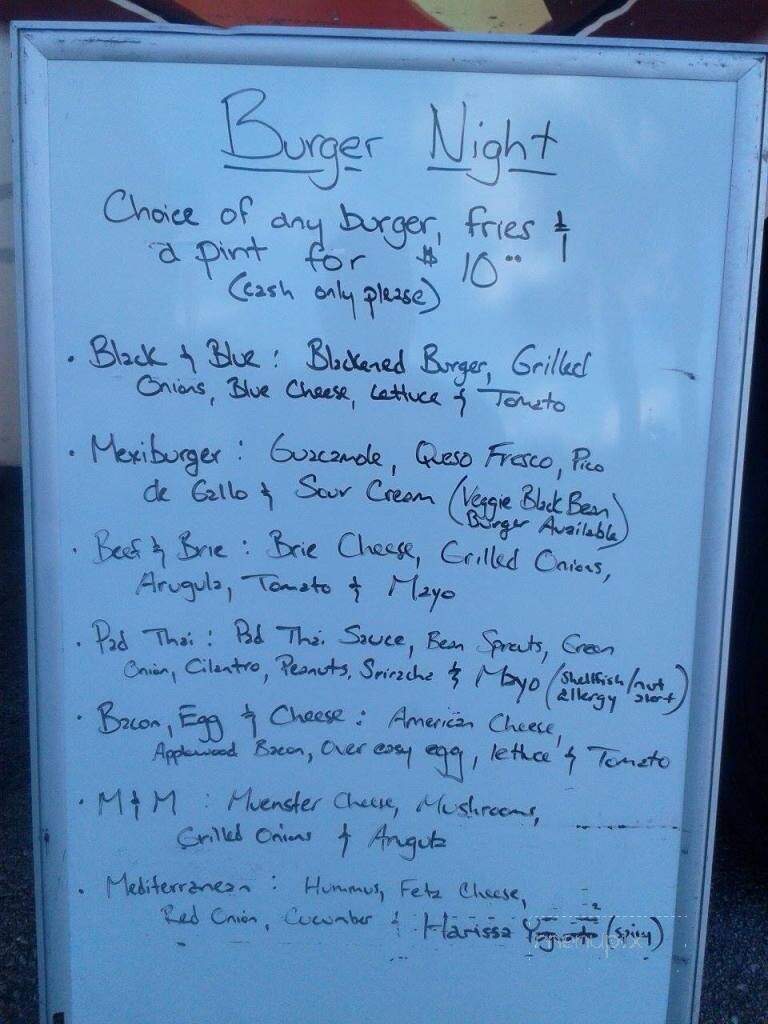 Burger Night
Choice of any burger, fries &
a pint for $10.00
(cash only please)
• Black & Blue: Blackened Burger, Grilled
Onions, Blue Cheese, Lettuce & Tomato
• Mexiburger: Guacamole, Queso Fresco, Pico
de Gallo & Sour Cream (Veggie Black Bean
Burger Available)
• Beef & Brie: Brie Cheese, Grilled Onions,
Arugula, Tomato & Mayo
• Pad Thai: Pad Thai Sauce, Bean Sprouts, Green
Onion, Cilantro, Peanuts, Sriracha & Mayo (Shellfish/nut
allergy alert)
• Bacon, Egg & Cheese: American Cheese,
Applewood Bacon, Over easy egg, lettuce & Tomato
• M & M: Muenster Cheese, Mushrooms,
Grilled Onions & Arugula
• Mediterranean: Hummus, Feta Cheese,
Red Onion, Cucumber & Harissa (spicy)
menupix